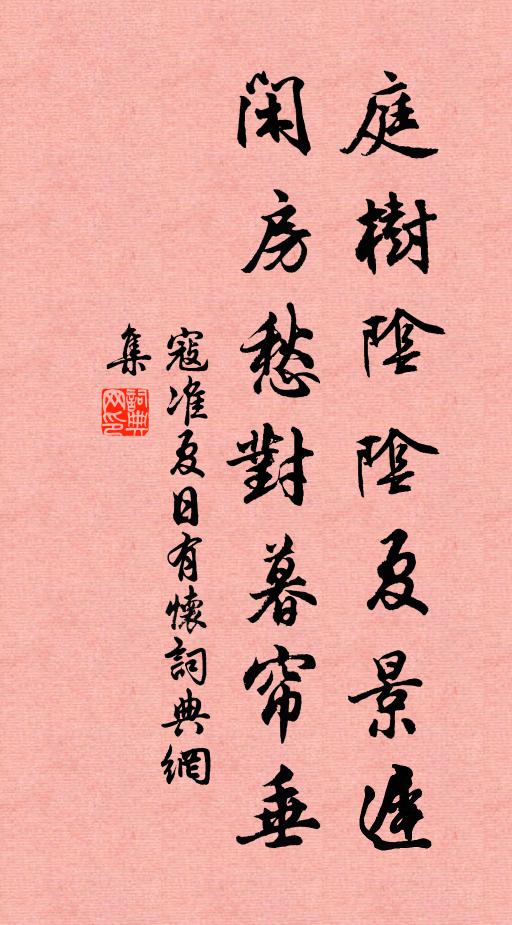 庭樹陰陰夏景遲
閑房愁對暮帘垂
寇准夏日有懷詞典網
集
詞典
网印